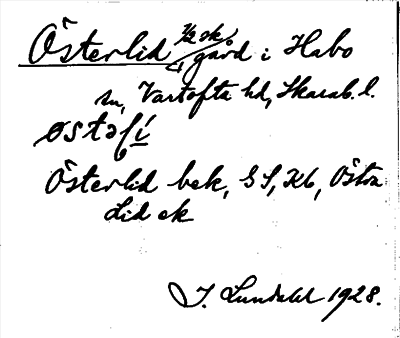 Österlid ½ sk. gård i Habo
sn, Vartofta hd, Skarab. l.
Österlid bek, GS, Kb, Östra
Lid ek
J. Lundahl 1928.